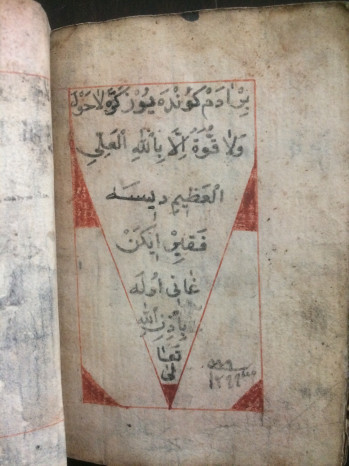 بِرْ اٰدَمْ كُونْدَه يُوزْ كَرَّه لَا حَوْلَ
وَلَا قُوَّةَ اِلَّا بِاللّٰهِ الْعَلِيِّ
الْعَظِيمِ دِيسَه
فَقِيرْ اِيكَنْ
غَانِي اُولَه
بِاِذْنِ اللّٰهِ
تَعَا
لٰى